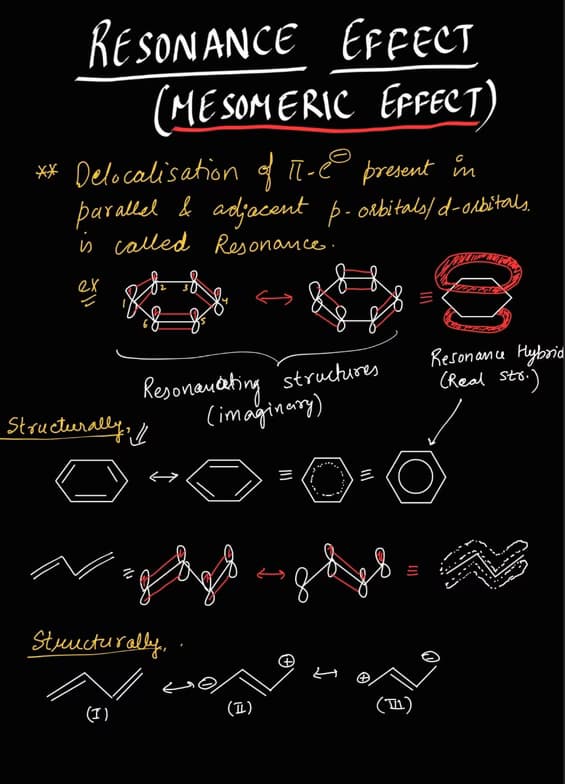 RESONANCE EFFECT
(MESOMERIC EFFECT)
** Delocalisation of π-e⊖ present in
parallel & adjacent p-orbitals/d-orbitals.
is called Resonance.
ex
1 2 3 4 5 6
Resonating structures
(imaginary)
Resonance Hybrid
(Real str.)
Structurally,
Structurally,.
⊖ ⊕ ⊕ ⊖
(I) (II) (III)